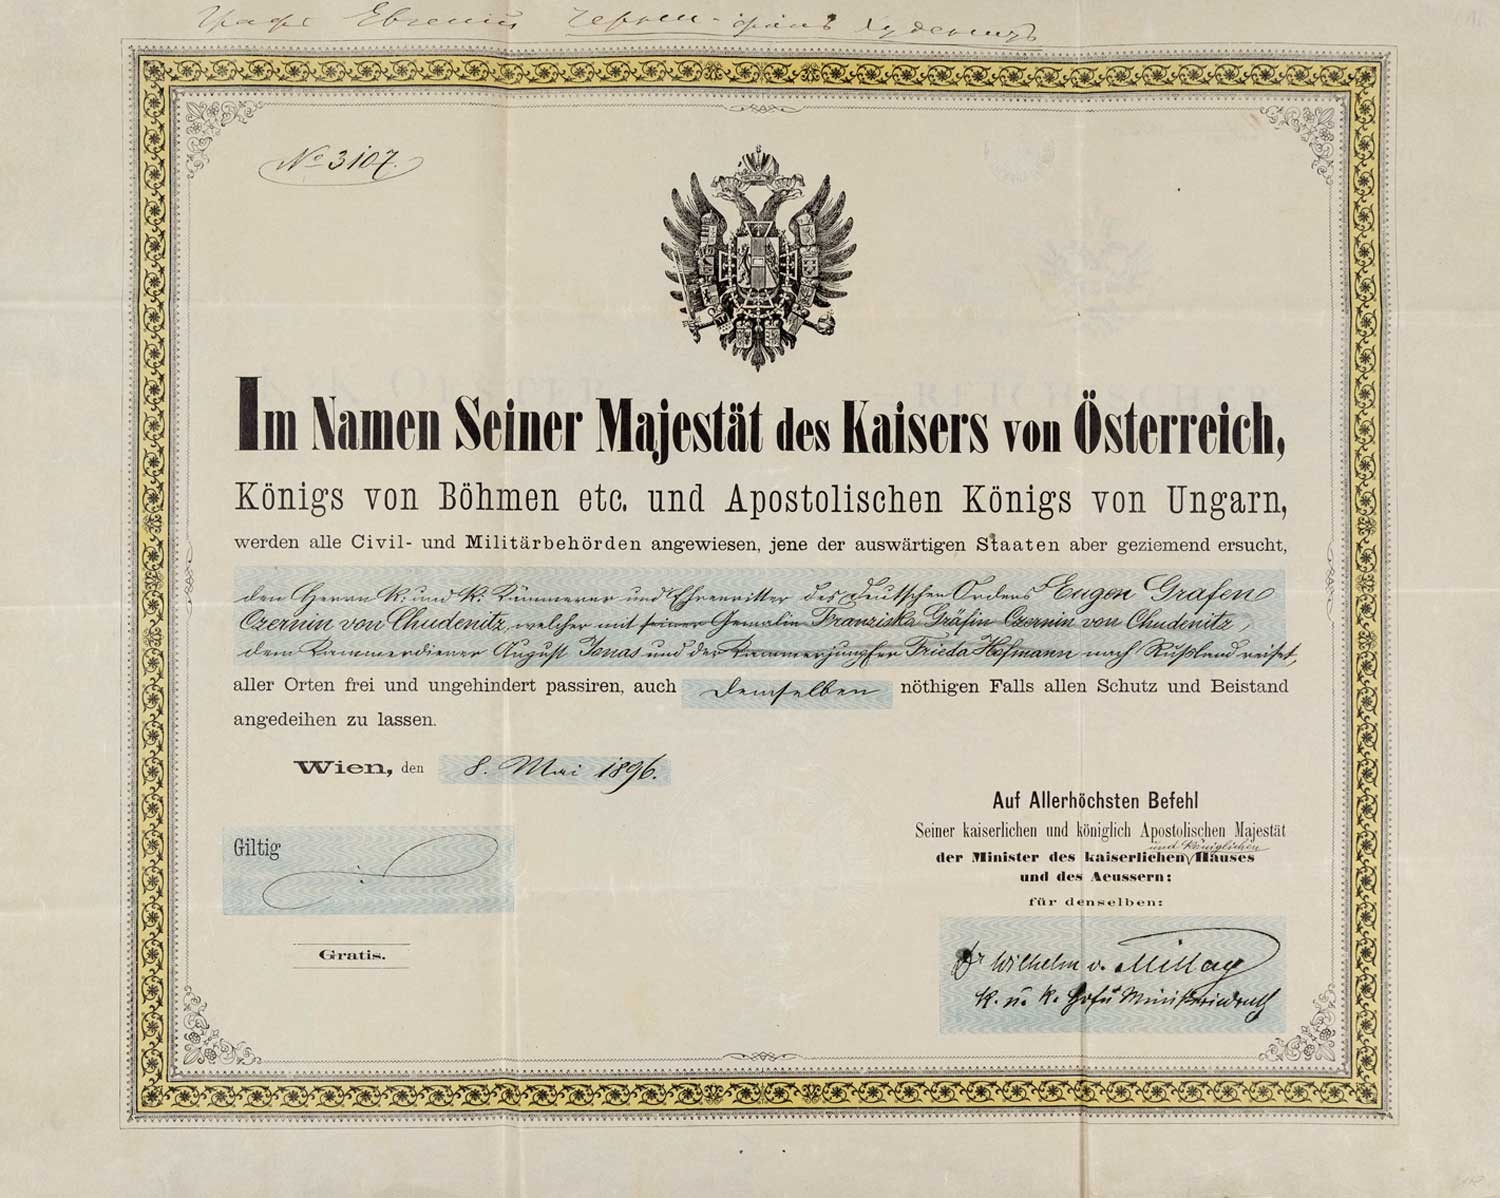 Графъ Евгеній Чернинъ-фонъ Худеницъ
No 3107.
Im Namen Seiner Majestät des Kaisers von Österreich,
Königs von Böhmen etc. und Apostolischen Königs von Ungarn,
werden alle Civil- und Militärbehörden angewiesen, jene der auswärtigen Staaten aber geziemend ersucht,
den Herrn K: und K. Kämmerer und Ehrenritter des deutschen Ordens Eugen Grafen
Czernin von Chudenitz, welcher mit seiner Gemalin Franziska Gräfin Czernin von Chudenitz,
dem Kammerdiener August Jonas und der Kammerjungfer Frieda Hofmann nach Rußland reiset,
aller Orten frei und ungehindert passiren, auch demselben nöthigen Falls allen Schutz und Beistand
angedeihen zu lassen.
Wien, den 8. Mai 1896.
Auf Allerhöchsten Befehl
Seiner kaiserlichen und königlich Apostolischen Majestät
und königlichen
der Minister des kaiserlichen Hauses
und des Aeussern:
für denselben:
Giltig
Gratis.
Dr Wilhelm v.
K. u. K. Hof u Ministerialrath